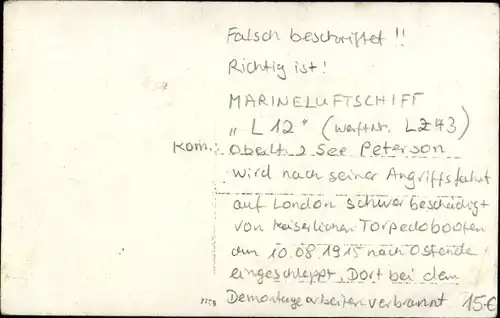 Falsch beschriftet!!
Richtig ist!
MARINELUFTSCHIFF
„L 12" (Werftnr. LZ43)
Kom.: Obelt. z See Peterson
wird nach seiner Angriffsfahrt
auf London schwer beschädigt
von kaiserlichen Torpedobooten
am 10.08.1915 nach Ostende
eingeschleppt, Dort bei dem
Demontagearbeiten verbrannt 15€